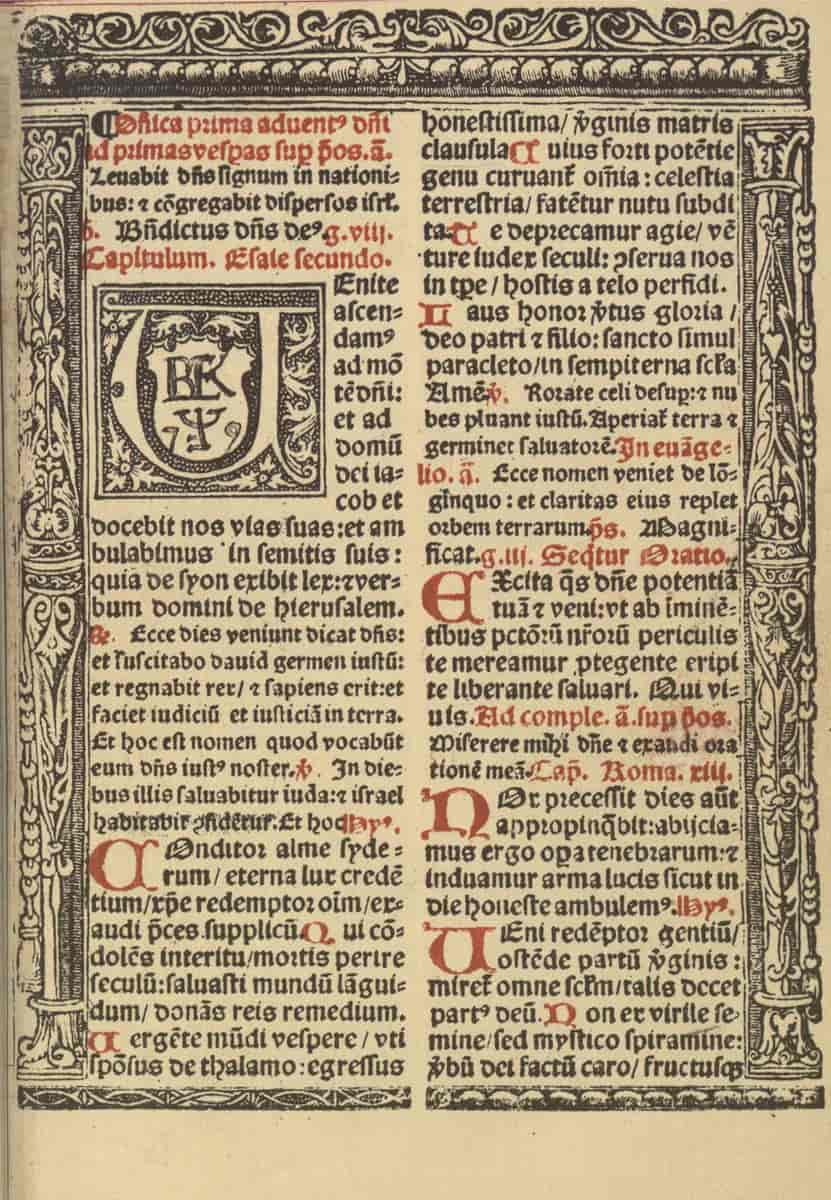 Dñica prima aduentꝰ dñi
ad primas vesꝑas suꝑ p̄os. ā.
Leuabit dñs signum in nationi-
bus: ⁊ cōgregabit dispersos isrł.
Bñdictus dñs deꝰ. g. viij.
Capitulum. Esaie secundo.
UEnite
ascen-
damꝰ
ad mō
tē dñi:
et ad
domū
dei ia-
cob et
BEK
79
docebit nos vias suas: et am
bulabimus in semitis suis:
quia de syon exibit lex: ⁊ ver-
bum domini de hierusalem.
Ecce dies veniunt dicat dñs:
et suscitabo dauid germen iustū:
et regnabit rex/ ⁊ sapiens erit: et
faciet iudiciū et iusticiā in terra.
Et hoc est nomen quod vocabūt
eum dñs iustꝰ noster. ℣. In die-
bus illis saluabitur iuda: ⁊ israel
habitabit ꝯfidēter. Et hoc Hyꝰ.
COnditor alme syde-
rum/ eterna lux credē
tium/ xp̄e redemptor oīm/ ex-
audi p̄ces supplicū. Q ui cō-
dolēs interitu/ mortis perire
seculū: saluasti mundū lāgui-
dum/ donās reis remedium.
U ergēte mūdi vespere/ vti
spōsus de thalamo: egressus
honestissima/ v̔ginis matris
clausula C uius forti potētie
genu curuant̄ om̄ia: celestia
terrestria/ fatētur nutu subdi
ta. T e deprecamur agie/ vē
ture iudex seculi: ꝯserua nos
in tp̄e/ hostis a telo perfidi.
L aus honor v̔tus gloria/
deo patri ⁊ filio: sancto simul
paracleto/ in sempiterna scƚa
Amē. ℣. Rorate celi desuꝑ: ⁊ nu
bes pluant iustū. Aperiat̄ terra ⁊
germinet saluatorē. In euāge-
lio. ā. Ecce nomen veniet de lō-
gīnquo: et claritas eius replet
orbem terrarum. p̄s. Magni-
ficat. g. iij. Seq̄tur Oratio.
EXcita q̄s dñe potentiā
tuā ⁊ veni: vt ab īminē-
tibus pctōrū nr̄orū periculis
te mereamur ꝓtegente eripi
te liberante saluari. Qui vi-
uis. Ad comple. ā. suꝑ p̄os.
Miserere mihi dñe ⁊ exaudi ora
tionē meā. Cap̄. Roma. xiij.
NOx precessit dies aūt
appropinq̄bit: abijcia-
mus ergo oꝑa tenebrarum: ⁊
induamur arma lucis sicut in
die honeste ambulemꝰ. Hyꝰ.
UEni redēptor gentiū/
ostēde partū v̔ginis:
miret̄ omne scƚm/ talis decet
partꝰ deū. N on ex virile se-
mine/ sed mystico spiramine:
v̔bū dei factū caro/ fructusqꝫ